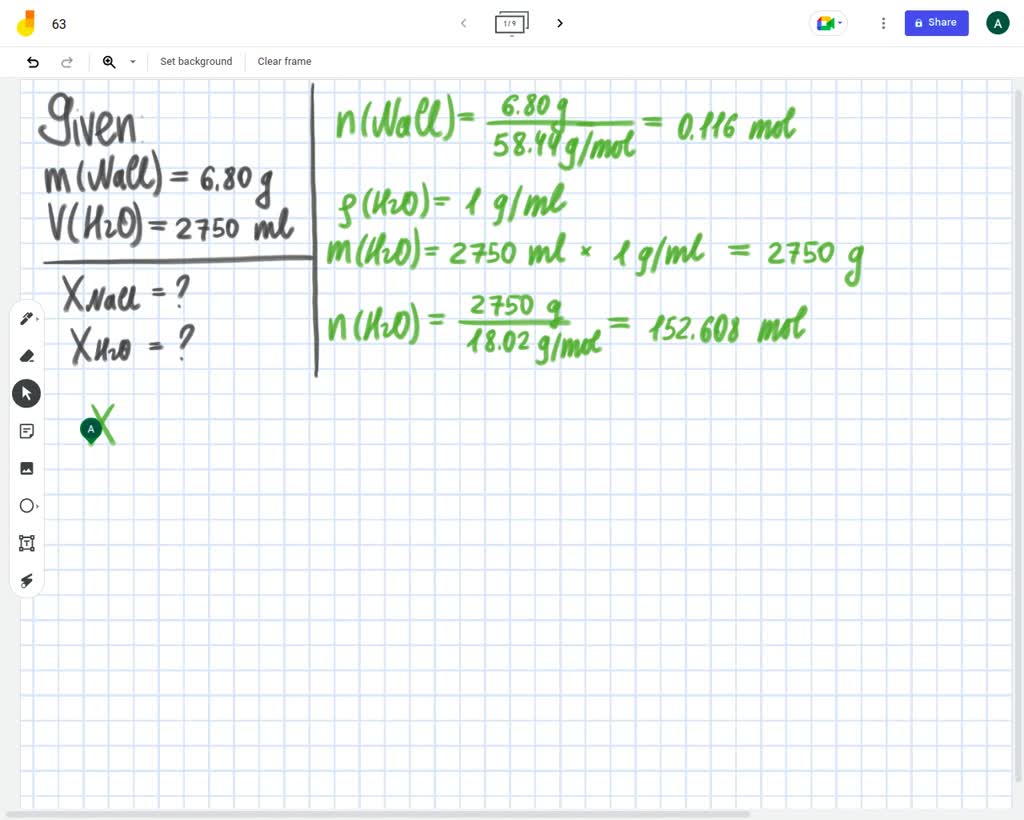 63
1/9
Share
A
Set background
Clear frame
Given:
m(NaCl) = 6.80 g
V(H2O) = 2750 ml
XNaCl = ?
XH2O = ?
n(NaCl) = 6.80 g / 58.44 g/mol = 0.116 mol
ρ(H2O) = 1 g/ml
m(H2O) = 2750 ml * 1 g/ml = 2750 g
n(H2O) = 2750 g / 18.02 g/mol = 152.608 mol
X
A
T